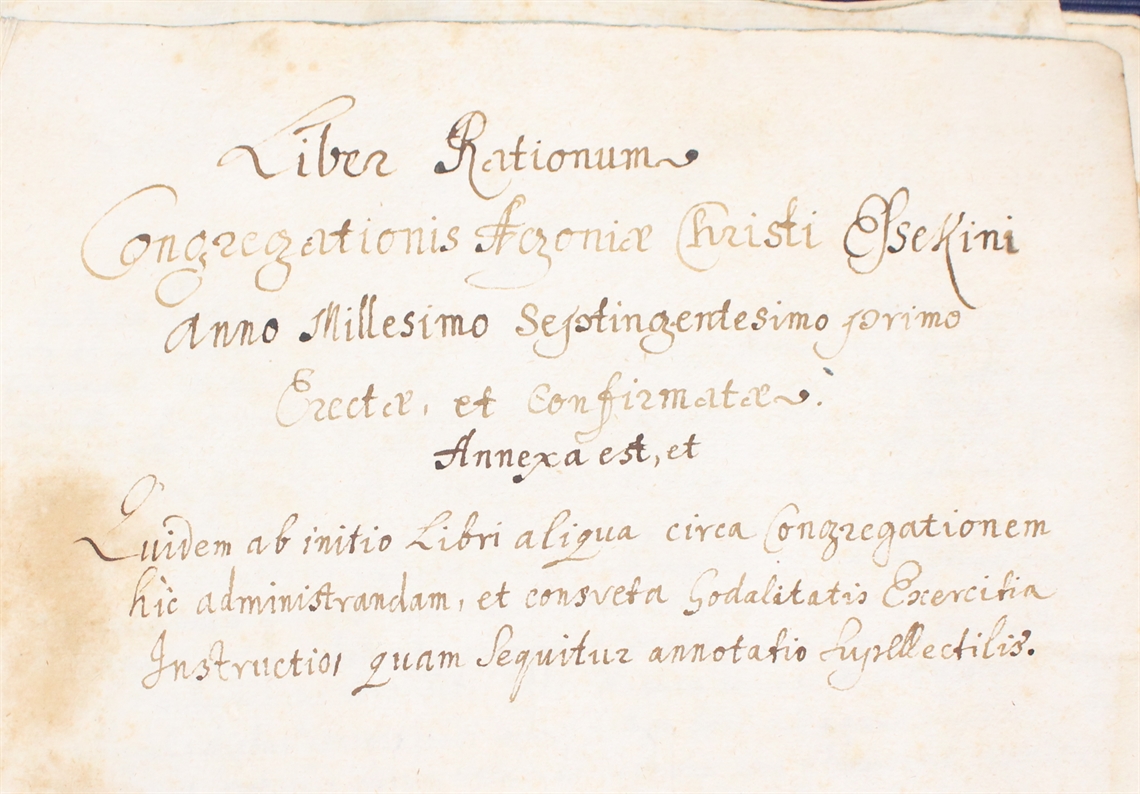 Liber Rationum
Congregationis Agoniæ Christi Essekini
anno Millesimo Septingentesimo primo
Erectæ, et Confirmatæ.
Annexa est, et
Quidem ab initio Libri aliqua circa Congregationem
hic administrandam, et consveta Sodalitatis Exercitia
Instructio, quam Sequitur annotatio Supellectilis.